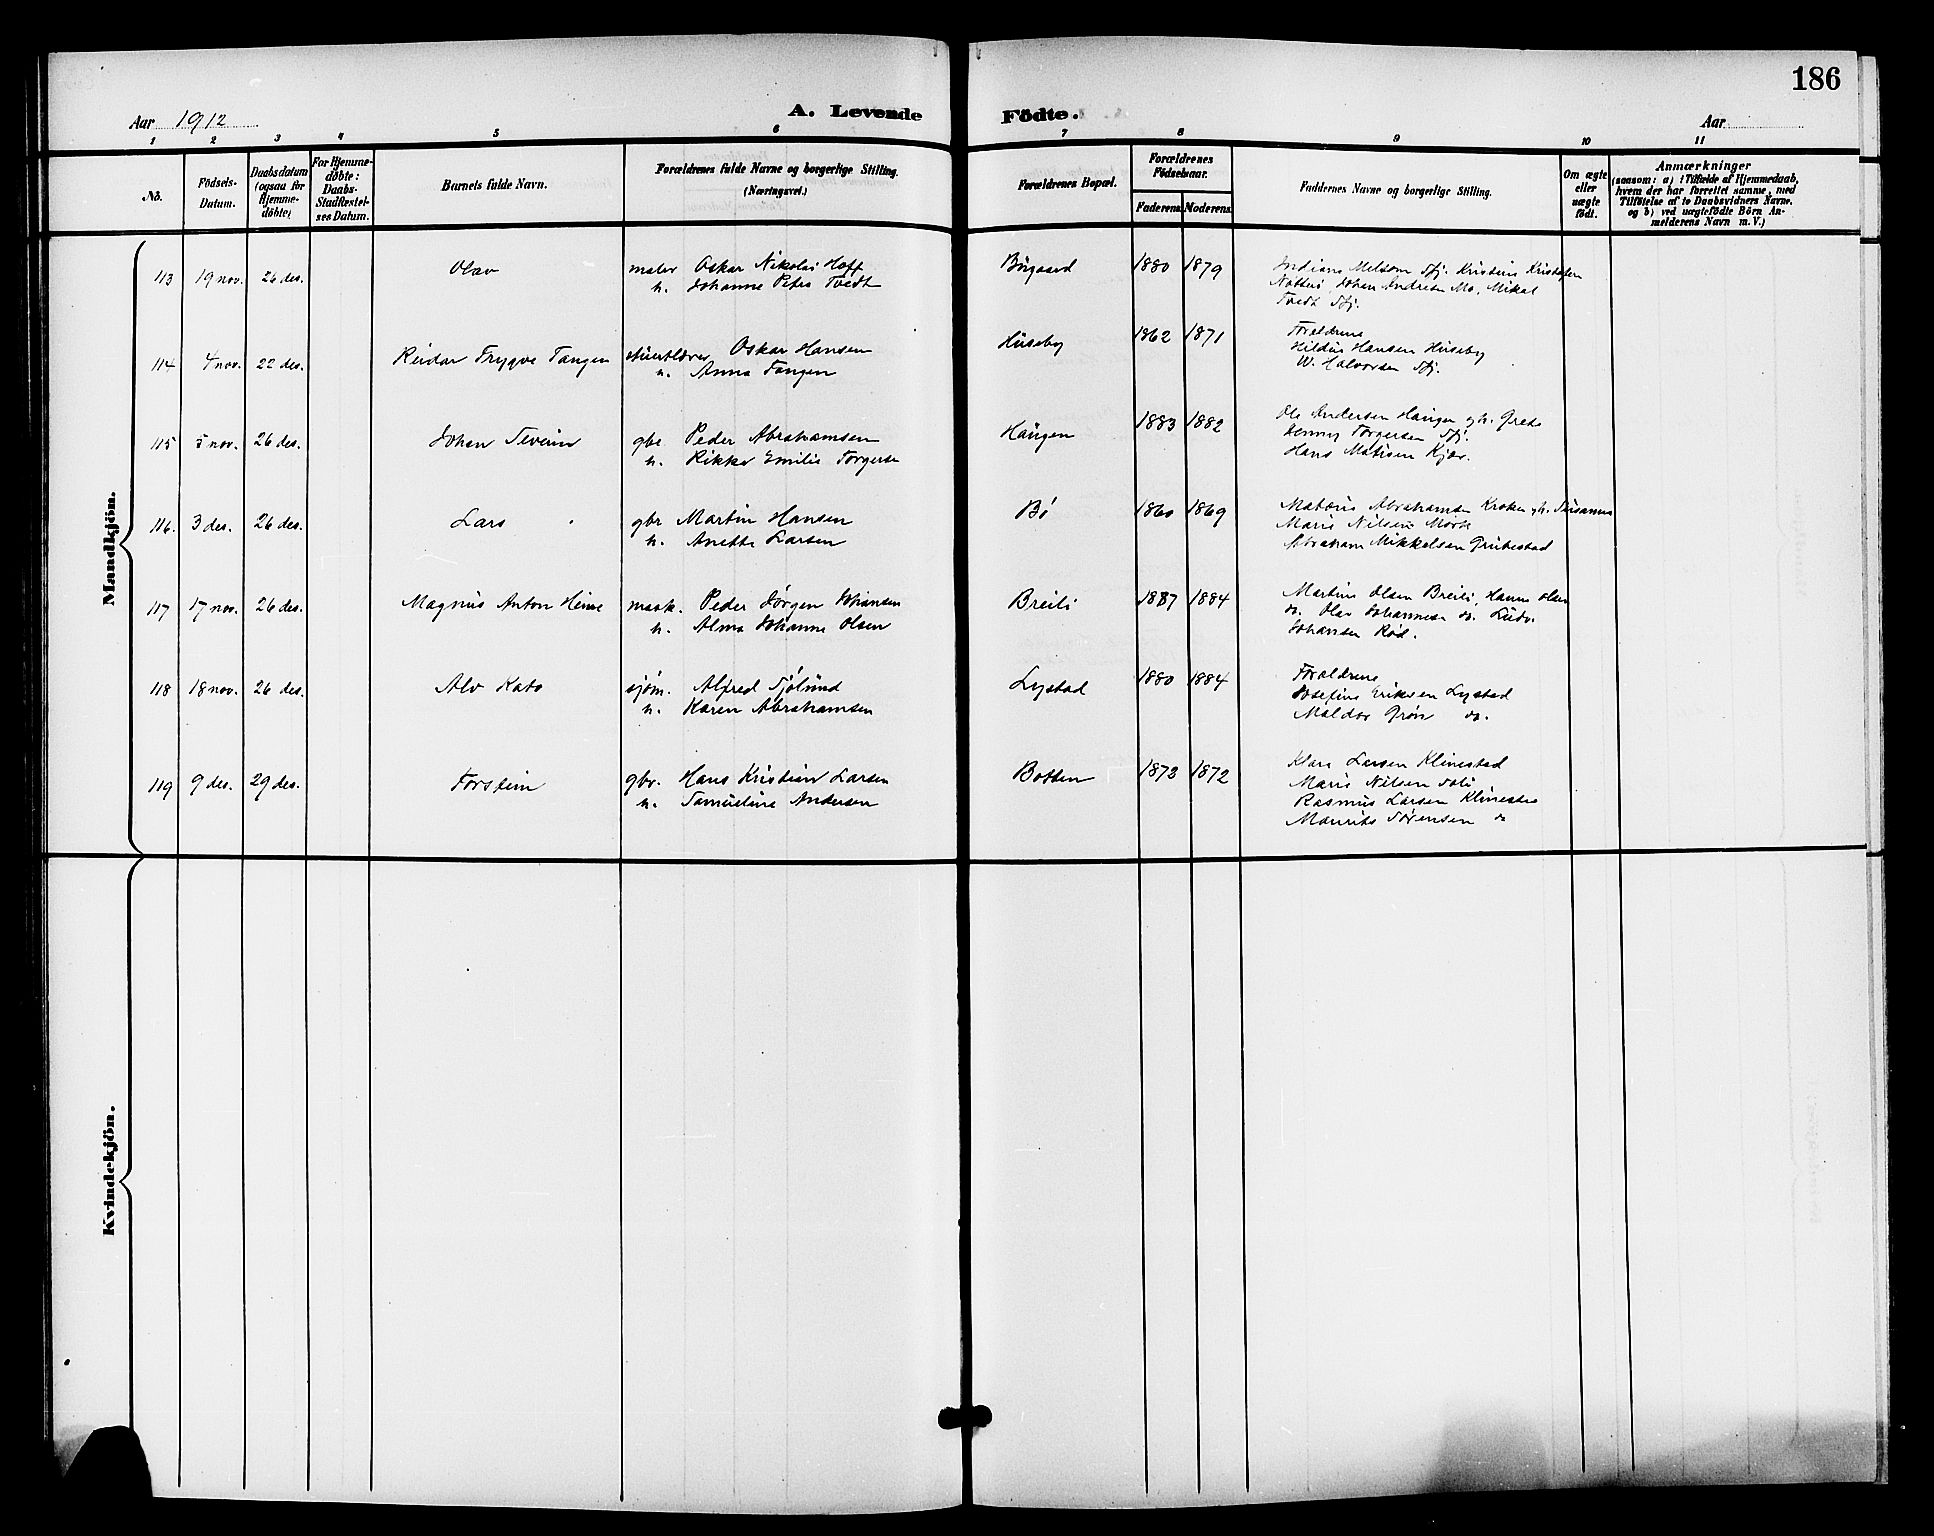 186
Aar 1912
A. Levende
Födte.
Aar
1 2 3 4 5 6 7 8 9 10 11
No.
Födsels-Datum.
Daabsdatum (ogsaa för Hjemme-döbte)
For Hjemme-döbte: Daabs-Stadfæstel-ses Datum.
Barnets fulde Navn.
Forældrenes fulde Navne og borgerlige Stilling. (Næringsvei.)
Forældrenes Bopæl.
Forældrenes Födselsaar.
Faderens Moderens
Faddernes Navne og borgerlige Stilling.
Om ægte eller uægte födt.
Anmærkninger
(saasom: a) i Tilfælde af Hjemmedaab,
hvem der har forrettet samme, med
Tilföielse af to Daabsvidners Navne.
og b) ved uægtefödte Börn An-
melderens Navn m. V.)
Mandkjön.
113 19 nov. 26 des. Olav
maler Oskar Nikolai Hoff
h. Johanne Petra Tvedt
Bügaard 1880 1879
Indiane Melsom Sfj. Kristine Kristofsen
Nötterö, Johan Andresen Mo, Mikal
Tvedt Sfj.
114 4 nov. 22 des. Reidar Trygve Tangen
Oskar Hansen
h. Anna Tangen
Hüseby 1862 1871
Forældrene
Hildur Hansen Hüseby
W. Halvorsen Sfj.
115 5 nov. 26 des. Johan Severin
gbr. Peder Abrahamsen
h. Rikke Emilie Torgersen
Haugen 1883 1882
Ole Andersen Haugen og h. Grete
Henny Torgersen Sfj.
Hans Matisen Kjær.
116. 3 des. 26 des. Lars
gbr Martin Hansen
h. Anette Larsen
Bö 1860 1869
Abrahamsen Kroken og h. Susanne
Marie Nilsen Mörk
Abraham Mikkelsen Grübestad
117 17 nov. 26 des. Magnus Anton
mask. Peder Jörgen Johansen
h. Alma Johanne Olsen
Breili 1887 1884
Martin Olsen Breili, Hanne Olsen
do. Olav Johannesen do. Ludv.
Johansen Röd.
118 18 nov. 26 des. Alv Kato
sjöm. Alfred Sjölund
h. Karen Abrahamsen
Lystad 1880 1884
Forældrene
Josefine Eriksen Lystad
Grön do.
119 9 des. 29 des. Torstein
gbr. Hans Kristian Larsen
h. Samueline Andersen
Botten 1873 1872
Klara Larsen Klinestad
Marie Nilsen
Rasmus Larsen Klinestad
Maurits Sörensen do
Kvindekjön.